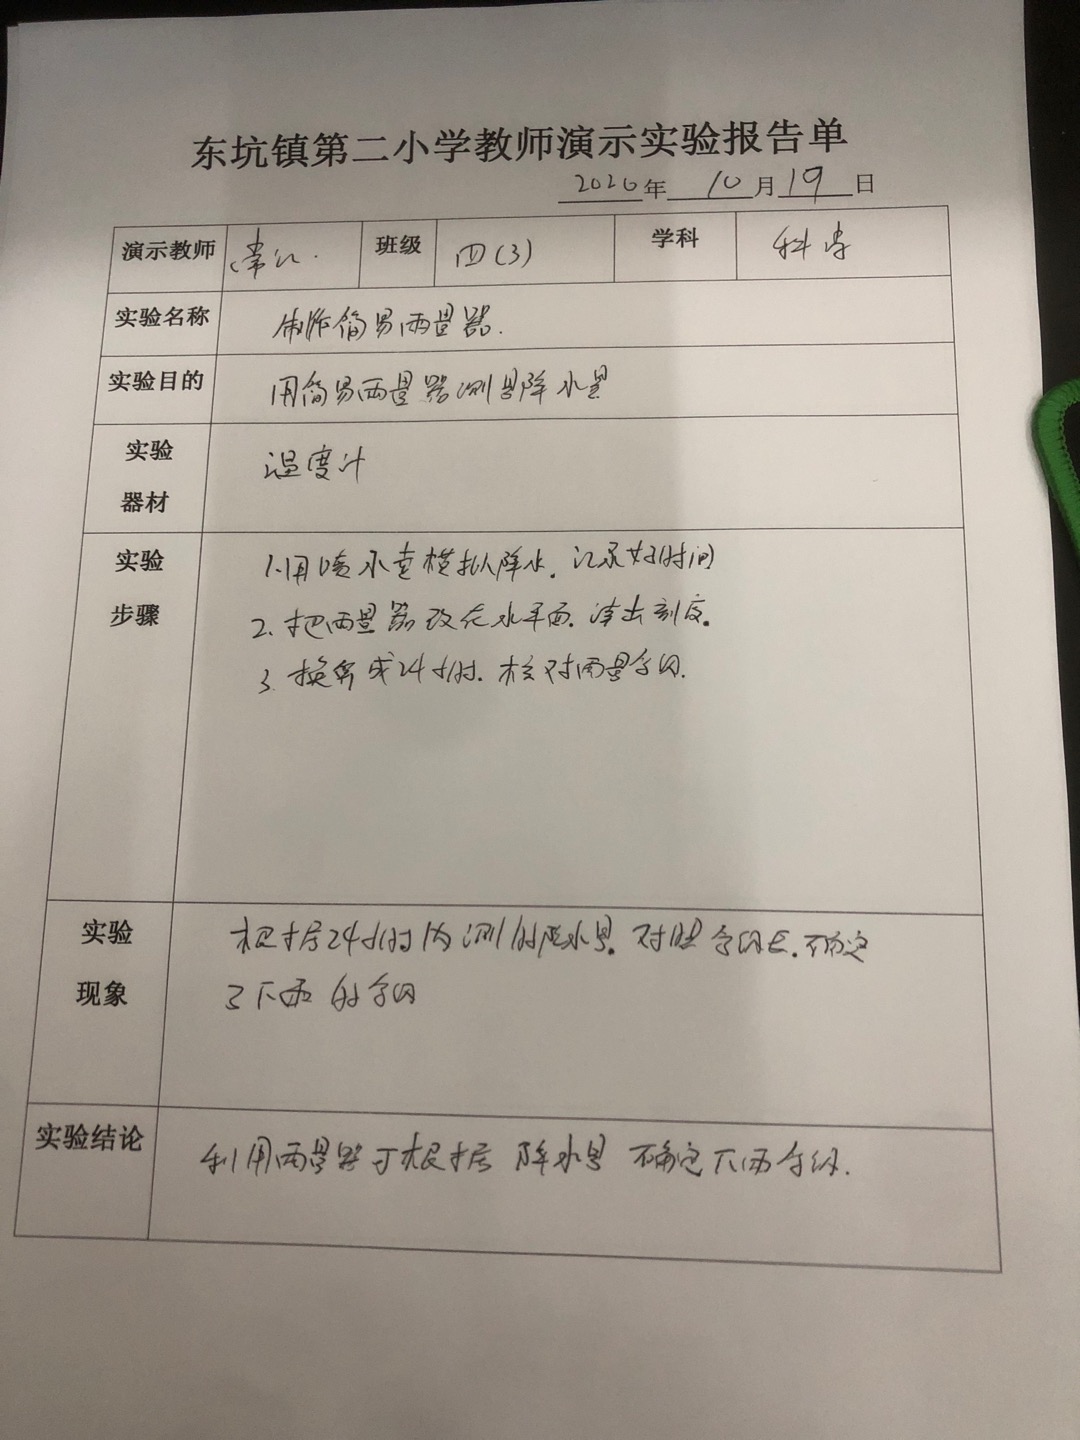 东坑镇第二小学教师演示实验报告单
2020年 10月19日
演示教师 班级 四(3) 学科 科学
实验名称 制作简易雨量器.
实验目的 用简易雨量器测量降水量
实验器材 温度计
实验步骤 1.用喷水壶模拟降水.记录好时间
2.把雨量器放在水平面.读出刻度.
3.换算成24小时.核对雨量等级.
实验现象 根据24小时内测的降水量.对照等级表.确定
了下雨的等级
实验结论 利用雨量器可根据降水量确定下雨等级.